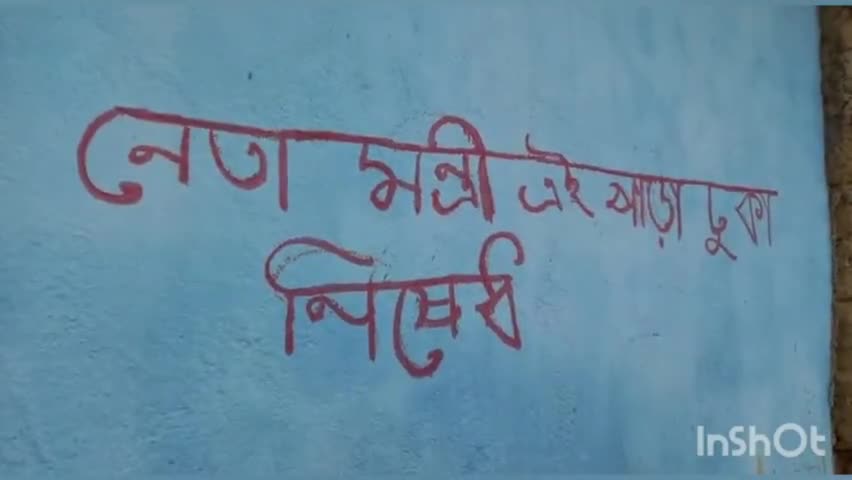 নেতা মন্ত্রী এই পাড়া ঢুকা
নিষেধ
InShOt